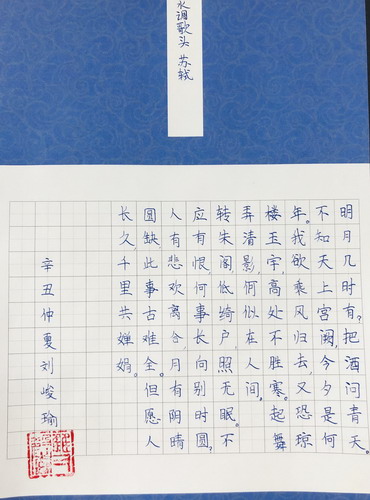 水调歌头 苏轼
明月几时有?把酒问青天。
不知天上宫阙,今夕是何
年。我欲乘风归去,又恐琼
楼玉宇,高处不胜寒。起舞
弄清影,何似在人间。
转朱阁,低绮户,照无眠。不
应有恨,何事长向别时圆?
人有悲欢离合,月有阴晴
圆缺,此事古难全。但愿人
长久,千里共婵娟。
辛丑仲夏刘峻瑜